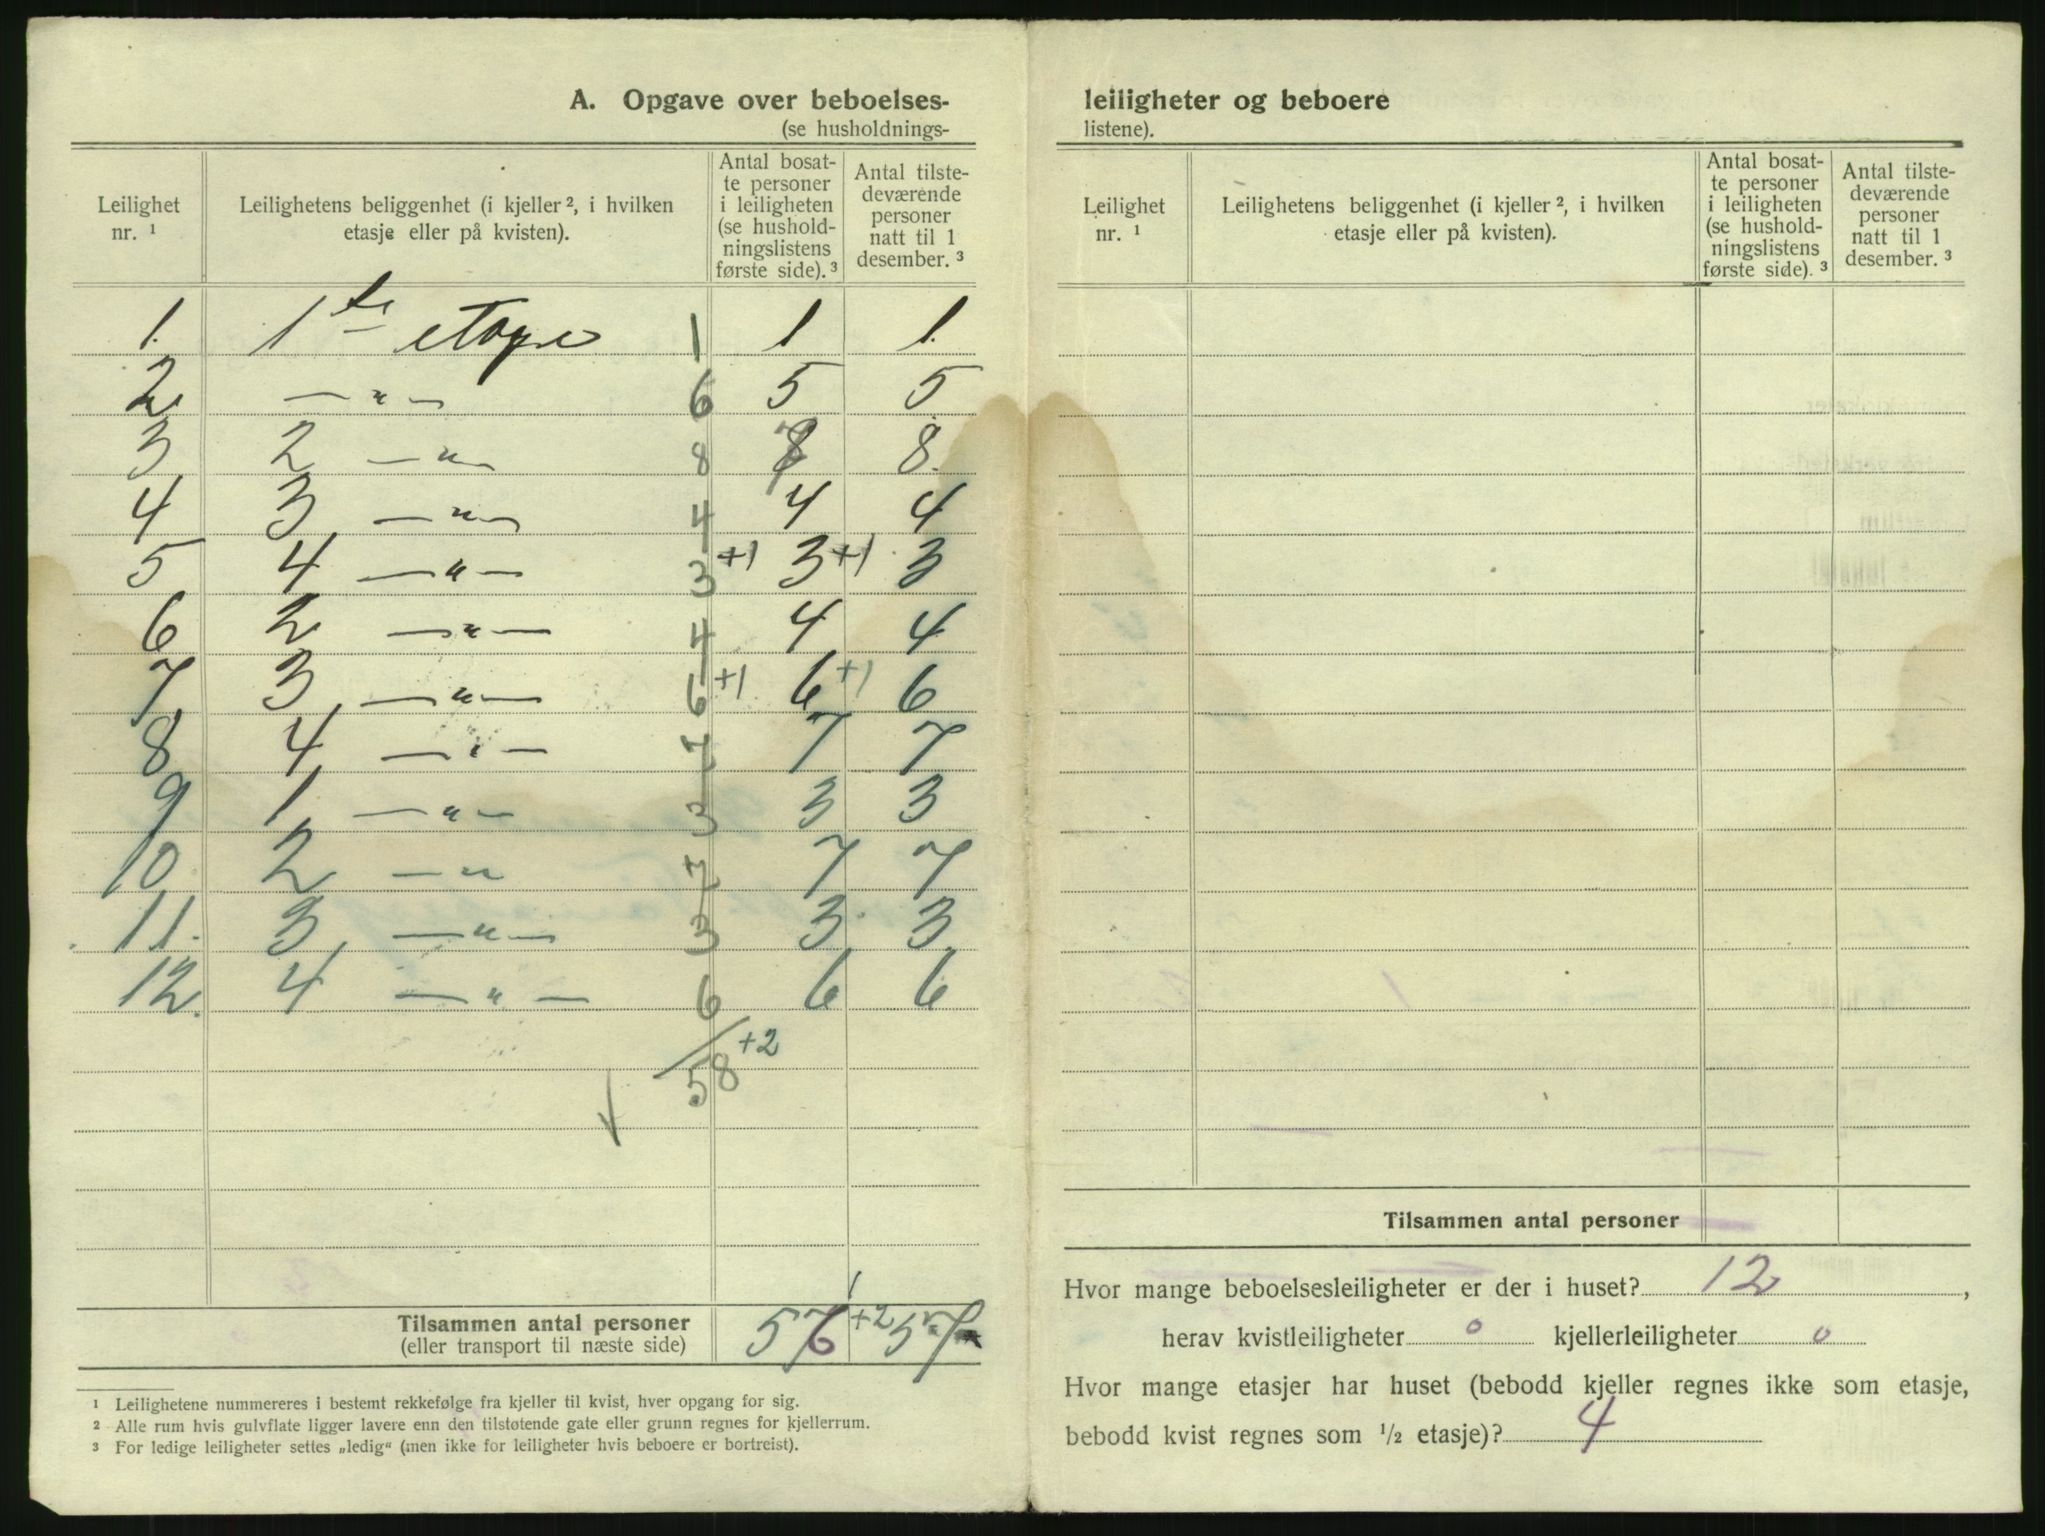 A. Opgave over beboelses-
(se husholdnings-
Leilighet nr. ¹
Leilighetens beliggenhet (i kjeller ², i hvilken etasje eller på kvisten).
Antal bosat-
te personer
i leiligheten
(se hushold-
ningslistens
første side). ³
Antal tilste-
deværende
personer
natt til 1
desember. ³
1. 1ste etage 1 1 1.
2 — " — 6 5 5
3 2 — " — 8 8.
4 3 — " — 4 4 4
5 4 — " — 3 +1 3 +1 3
6 2 — " — 4 4 4
7 3 — " — 6 +1 6 +1 6
8 4 — " — 7 7 7
9 1 — " — 3 3 3
10 2 — " 7 7 7
11. 3 — " — 3 3. 3
12. 4 — " — 6 6 6
58 +2
Tilsammen antal personer
(eller transport til næste side)
+2 57
¹ Leilighetene nummereres i bestemt rekkefølge fra kjeller til kvist, hver opgang for sig.
² Alle rum hvis gulvflate ligger lavere enn den tilstøtende gate eller grunn regnes for kjellerrum.
³ For ledige leiligheter settes „ledig“ (men ikke for leiligheter hvis beboere er bortreist).
leiligheter og beboere
listene).
Leilighet nr. ¹
Leilighetens beliggenhet (i kjeller ², i hvilken etasje eller på kvisten).
Antal bosat-
te personer
i leiligheten
(se hushold-
ningslistens
første side). ³
Antal tilste-
deværende
personer
natt til 1
desember. ³
Tilsammen antal personer
Hvor mange beboelsesleiligheter er der i huset? 12,
herav kvistleiligheter 0 kjellerleiligheter 0
Hvor mange etasjer har huset (bebodd kjeller regnes ikke som etasje,
bebodd kvist regnes som ½ etasje)? 4